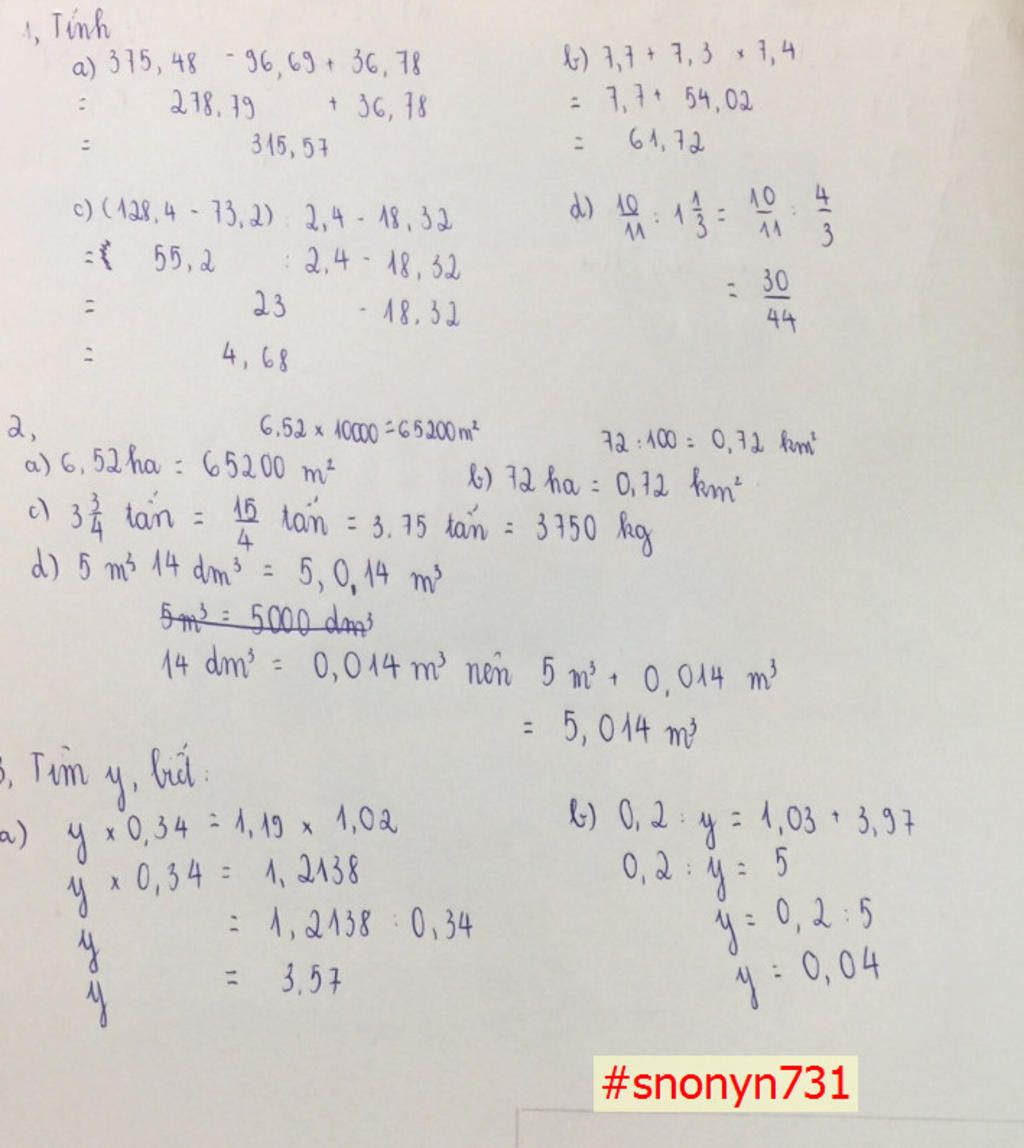 1, Tính
a) 375,48 - 96,69 + 36,78
= 278,79 + 36,78
= 315,57
b) 7,7 + 7,3 × 7,4
= 7,7 + 54,02
= 61,72
c) (128,4 - 73,2) : 2,4 - 18,32
= 55,2 : 2,4 - 18,32
= 23 - 18,32
= 4,68
d) 10/11 : 1 1/3 = 10/11 : 4/3
= 30/44
2,
6,52 × 10000 = 65200 m²
72 : 100 = 0,72 km²
a) 6,52 ha = 65200 m²
b) 72 ha = 0,72 km²
c) 3 3/4 tấn = 15/4 tấn = 3,75 tấn = 3750 kg
d) 5 m³ 14 dm³ = 5,0,14 m³
5m³ = 5000 dm³
14 dm³ = 0,014 m³ nên 5 m³ + 0,014 m³
= 5,014 m³
3, Tìm y, biết:
a) y × 0,34 = 1,19 × 1,02
y × 0,34 = 1,2138
y = 1,2138 : 0,34
y = 3,57
b) 0,2 : y = 1,03 + 3,97
0,2 : y = 5
y = 0,2 : 5
y = 0,04
#snonyn731